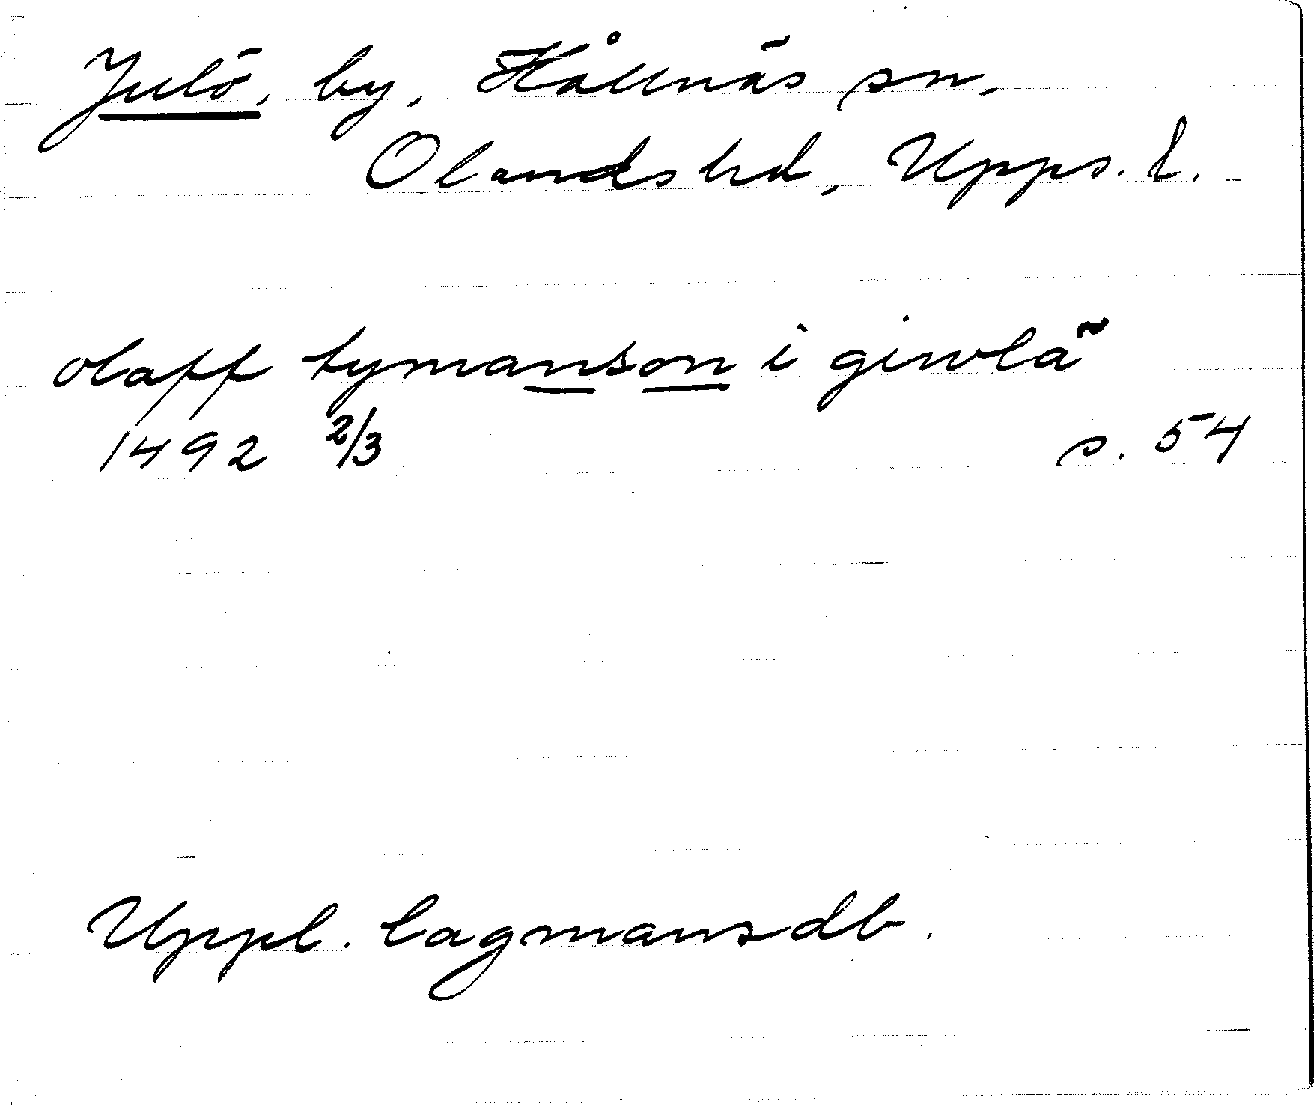 Julö, by, Hållnäs sn.
Olandshd, Upps. l.
olaff tymanson i giwlä
1492 2/3 s. 54
Uppl. lagmansdb.